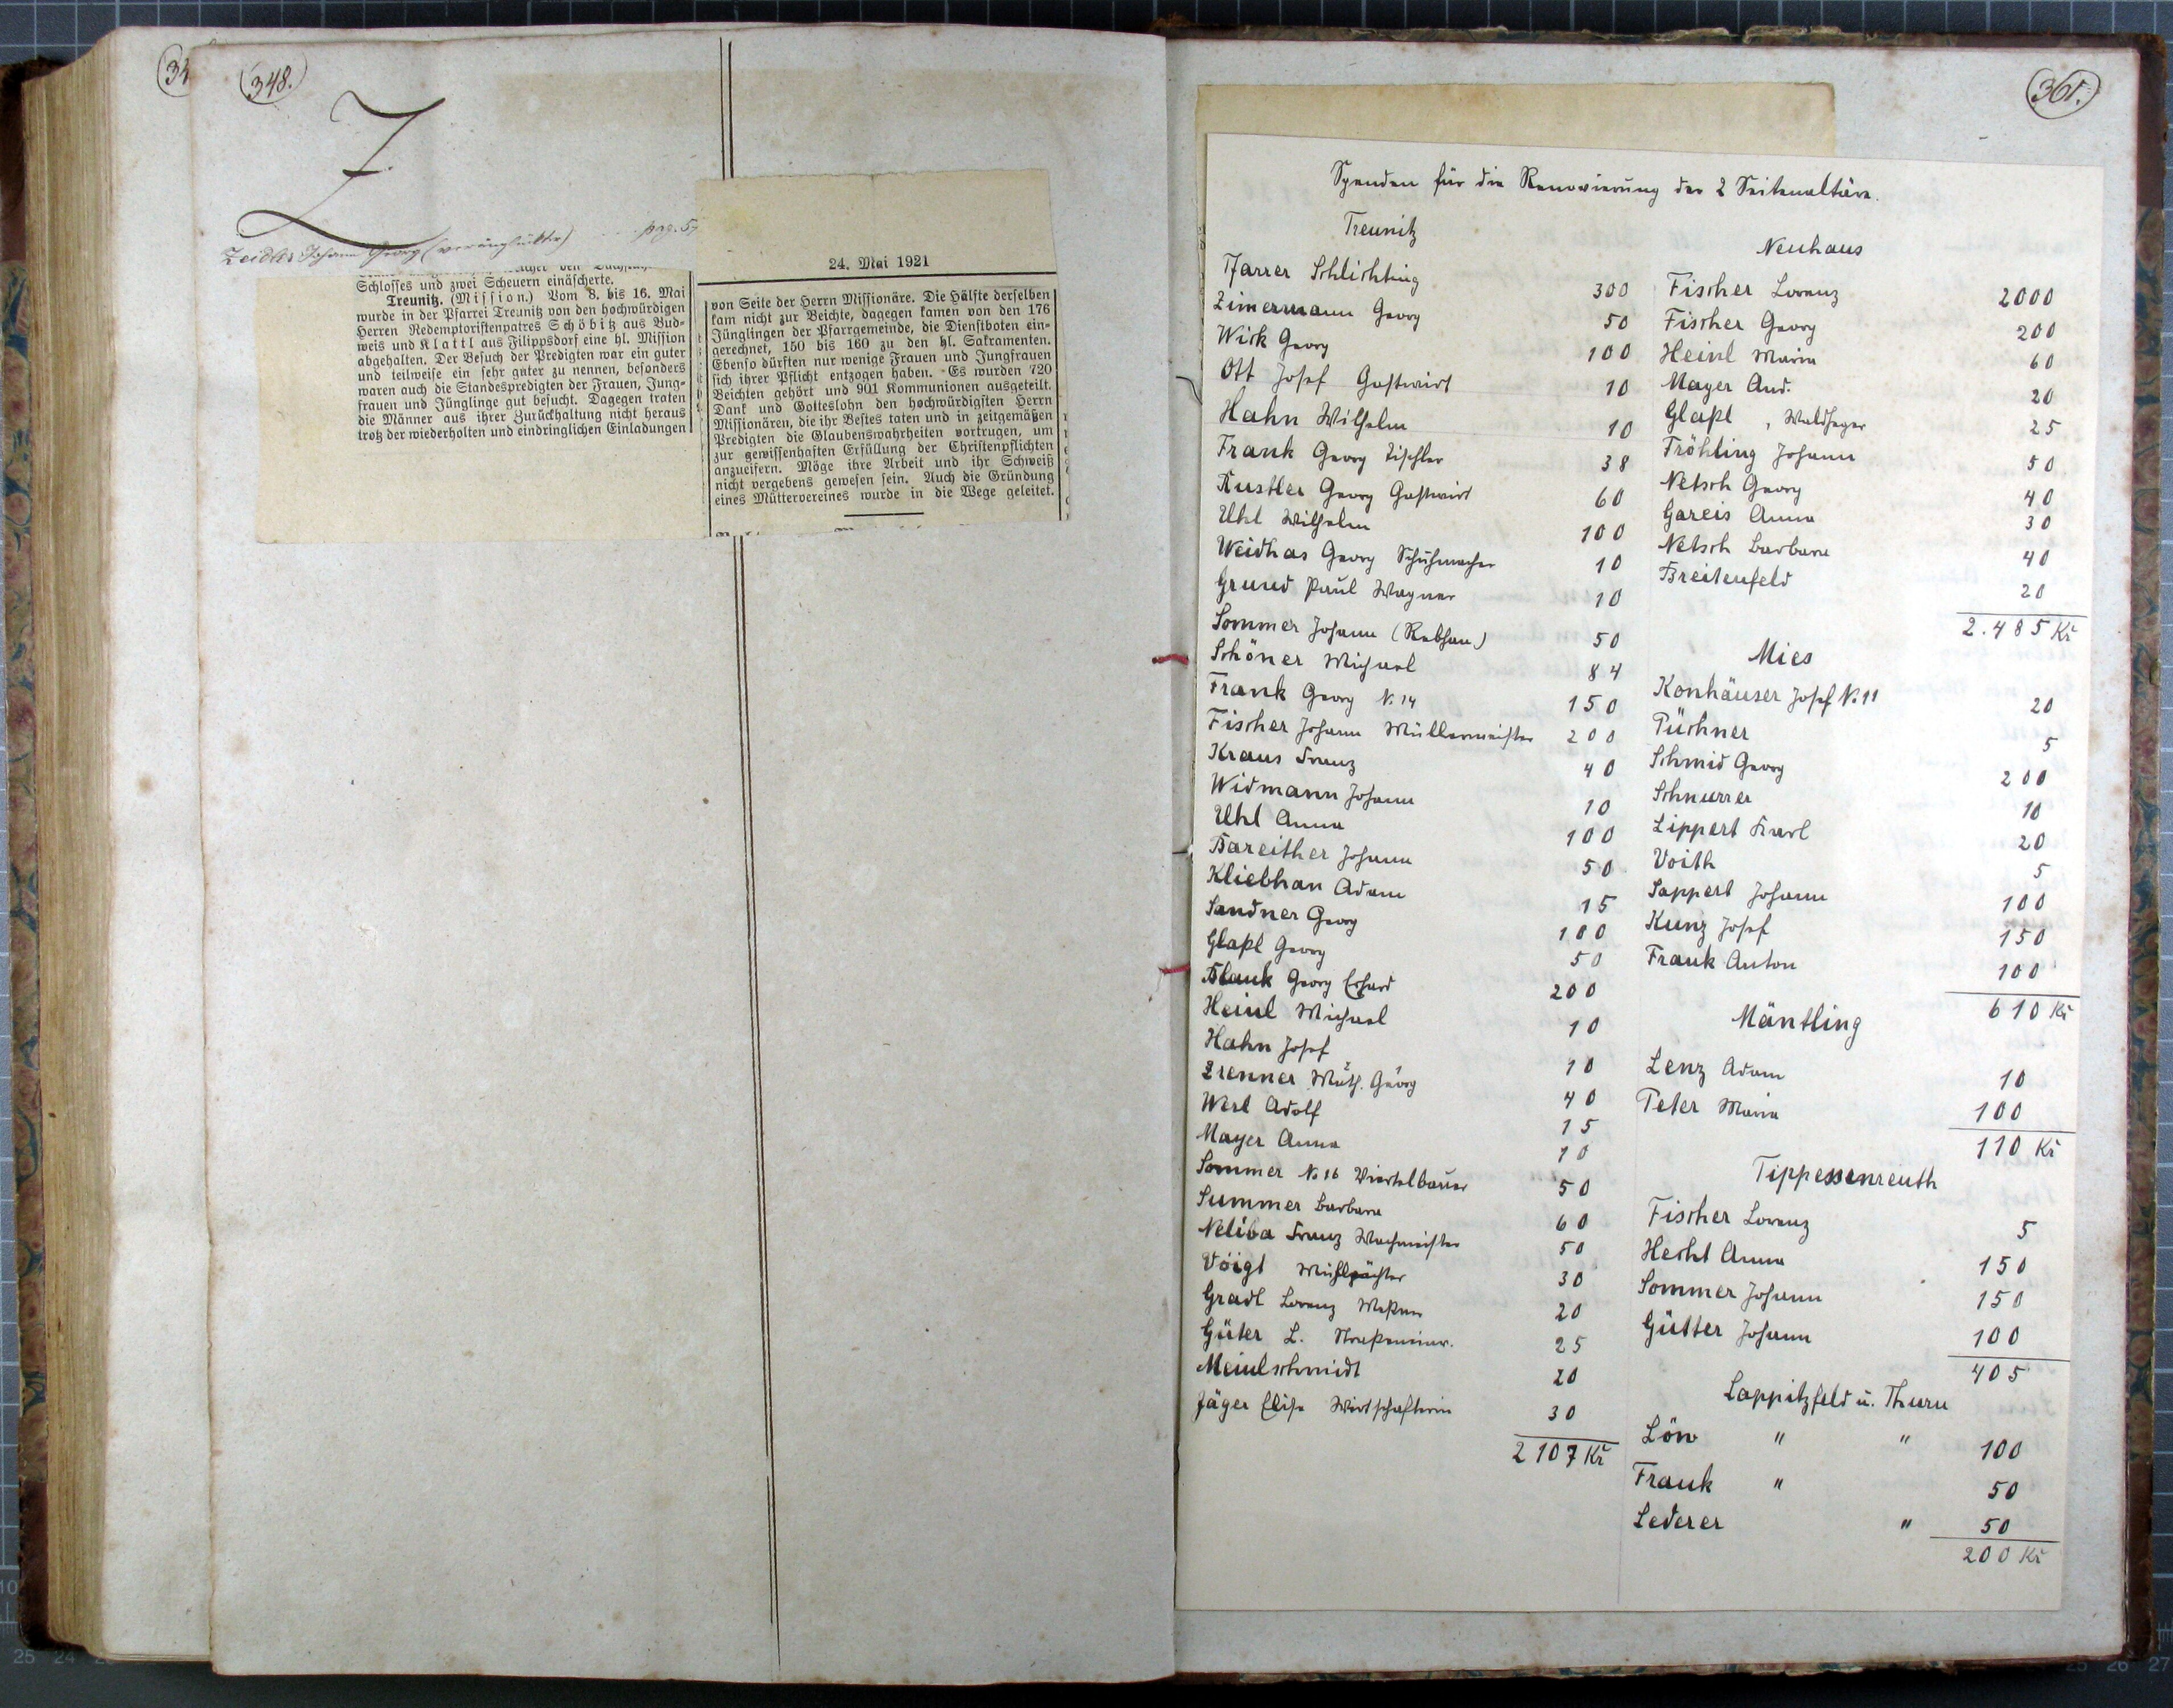 34
348.
Z
Zeidler Johann Georg (verunglückte) .... pag. 57
Schlosses und zwei Scheuern einäscherte.
Treunitz. (Mission.) Vom 8. bis 16. Mai
wurde in der Pfarrei Treunitz von den hochwürdigen
Herren Redemptoristenpatres Schöbitz aus Bud-
weis und Klattl aus Filippsdorf eine hl. Mission
abgehalten. Der Besuch der Predigten war ein guter
und teilweise ein sehr guter zu nennen, besonders
waren auch die Standespredigten der Frauen, Jung-
frauen und Jünglinge gut besucht. Dagegen traten
die Männer aus ihrer Zurückhaltung nicht heraus
trotz der wiederholten und eindringlichen Einladungen
24. Mai 1921
von Seite der Herrn Missionäre. Die Hälfte derselben
kam nicht zur Beichte, dagegen kamen von den 176
Jünglingen der Pfarrgemeinde, die Dienstboten ein-
gerechnet, 150 bis 160 zu den hl. Sakramenten.
Ebenso dürften nur wenige Frauen und Jungfrauen
sich ihrer Pflicht entzogen haben. Es wurden 720
Beichten gehört und 901 Kommunionen ausgeteilt.
Dank und Gotteslohn den hochwürdigsten Herrn
Missionären, die ihr Bestes taten und in zeitgemäßen
Predigten die Glaubenswahrheiten vortrugen, um
zur gewissenhaften Erfüllung der Christenpflichten
anzueifern. Möge ihre Arbeit und ihr Schweiß
nicht vergebens gewesen sein. Auch die Gründung
eines Müttervereines wurde in die Wege geleitet.
361.
Spenden für die Renovierung der 2 Seitenaltäre.
Treunitz
Pfarrer Schlichting 300
Zimermann Georg 50
Wirk Georg 100
Ott Josef Gastwirt 10
Hahn Wilhelm 10
Frank Georg Tischler 38
Rustler Georg Gastwirt 60
Uhl Wilhelm 100
Weidhas Georg Schuhmacher 10
Grund Paul Wagner 10
Sommer Johann (Rebhan) 50
Schöner Michael 84
Frank Georg N. 14 150
Fischer Johann Müllermeister 200
Kraus Franz 40
Widmann Johann 10
Uhl Anna 100
Bareither Johann 50
Kliebhan Adam 15
Sandner Georg 100
Glaßl Georg 50
Blank Georg Erhard 200
Heinl Michael 10
Hahn Josef 10
Zrenner Math. Georg 40
Werl Adolf 15
Mayer Anna 10
Sommer No 16 Viertelbauer 50
Summer Barbara 60
Neliba Franz Wachmeister 50
Voigt Mühlpächter 30
Gradl Lorenz 20
Güter L. Straßeneinr. 25
Meinlschmidt 20
Jäger Elise Wirtschafterin 30
2107 Kč
Neuhaus
Fischer Lorenz 2000
Fischer Georg 200
Heinl Maria 60
Mayer And. 20
Glaßl , Waldheger 25
Fröhling Johann 50
Netsch Georg 40
Gareis Anna 30
Netsch Barbara 40
Breitenfeld 20
2.485 Kč
Mies
Konhäuser Josef N. 11 20
Püchner 5
Schmid Georg 200
Schnurrer 10
Lippert Karl 20
Voith 5
Sappert Johann 100
Kunz Josef 150
Frank Anton 100
610 Kč
Mäntling
Lenz Adam 10
Peter Maria 100
110 Kč
Tippessenreuth
Fischer Lorenz 5
Hecht Anna 150
Sommer Johann 150
Gütter Johann 100
405
Lappitzfeld u. Thurn
Löw " " 100
Frank " 50
Lederer " 50
200 Kč